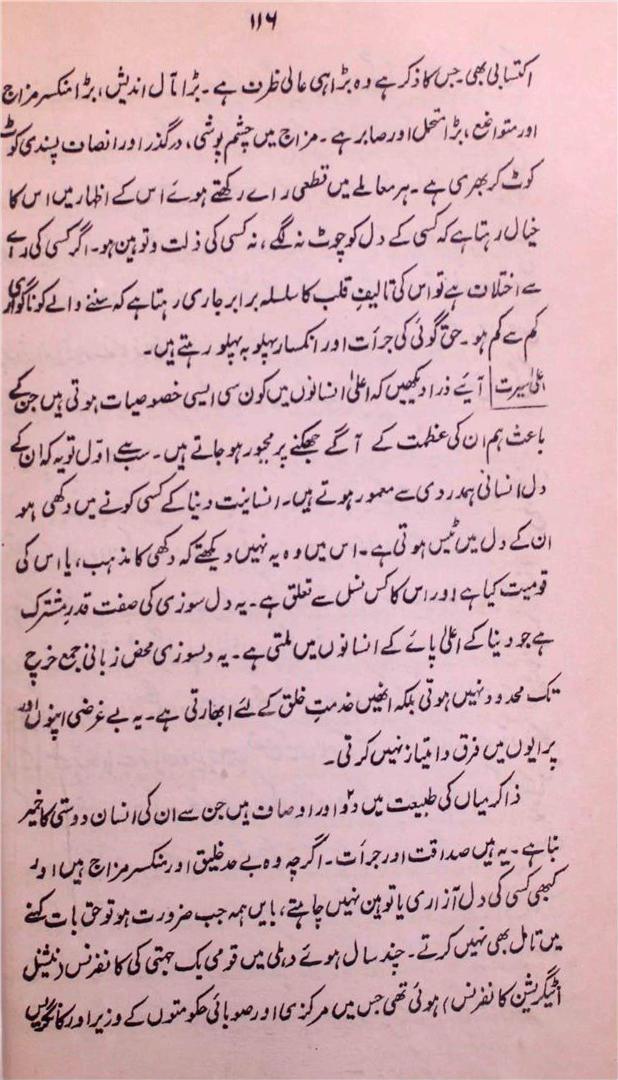 ۱۱۶
اکتسابی بھی۔ جس کا ذکر ہے وہ بڑا ہی عالی ظرف ہے۔ بڑا مآل اندیش، بڑا منکسر مزاج
اور متواضع، بڑا متحمل اور صابر ہے۔ مزاج میں چشم پوشی، درگذر اور انصاف پسندی کوٹ
کوٹ کر بھری ہے۔ ہر معاملے میں قطعی راے رکھتے ہوئے اس کے اظہار میں اس کا
خیال رہتا ہے کہ کسی کے دل کو چوٹ نہ لگے، نہ کسی کی ذلت و توہین ہو۔ اگر کسی کی راے
سے اختلاف ہے تو اس کی تالیفِ قلب کا سلسلہ برابر جاری رہتا ہے کہ سننے والے کو ناگواری
کم سے کم ہو۔ حق گوئی کی جرأت اور انکسار پہلو بہ پہلو رہتے ہیں۔
اعلیٰ سیرت آیئے ذرا دیکھیں کہ اعلیٰ انسانوں میں کون سی ایسی خصوصیات ہوتی ہیں جن کے
باعث ہم ان کی عظمت کے آگے جھکنے پر مجبور ہو جاتے ہیں۔ سب سے اوّل تو یہ کہ ان کے
دل انسانی ہمدردی سے معمور ہوتے ہیں۔ انسانیت دنیا کے کسی کونے میں دکھی ہو
ان کے دل میں ٹیس ہوتی ہے۔ اس میں وہ یہ نہیں دیکھتے کہ دکھی کا مذہب، یا اس کی
قومیت کیا ہے اور اس کا کس نسل سے تعلق ہے۔ یہ دل سوزی کی صفت قدرِ مشترک
ہے جو دنیا کے اعلیٰ پائے کے انسانوں میں ملتی ہے۔ یہ دلسوزی محض زبانی جمع خرچ
تک محدود نہیں ہوتی بلکہ انھیں خدمتِ خلق کے لئے ابھارتی ہے۔ یہ بے غرضی اپنوں اور
پرایوں میں فرق و امتیاز نہیں کرتی۔
ذاکر میاں کی طبیعت میں دو اور اوصاف ہیں جن سے ان کی انسان دوستی کا خمیر
بنا ہے۔ یہ ہیں صداقت اور جرأت۔ اگرچہ وہ بے حد خلیق اور منکسر مزاج ہیں اور
کبھی کسی کی دل آزاری یا توہین نہیں چاہتے، بایں ہمہ جب ضرورت ہو تو حق بات کہنے
میں تامل بھی نہیں کرتے۔ چند سال ہوئے دہلی میں قومی یک جہتی کی کانفرنس (نیشنل
انٹیگریشن کانفرنس) ہوئی تھی جس میں مرکزی اور صوبائی حکومتوں کے وزیر اور کانگریس